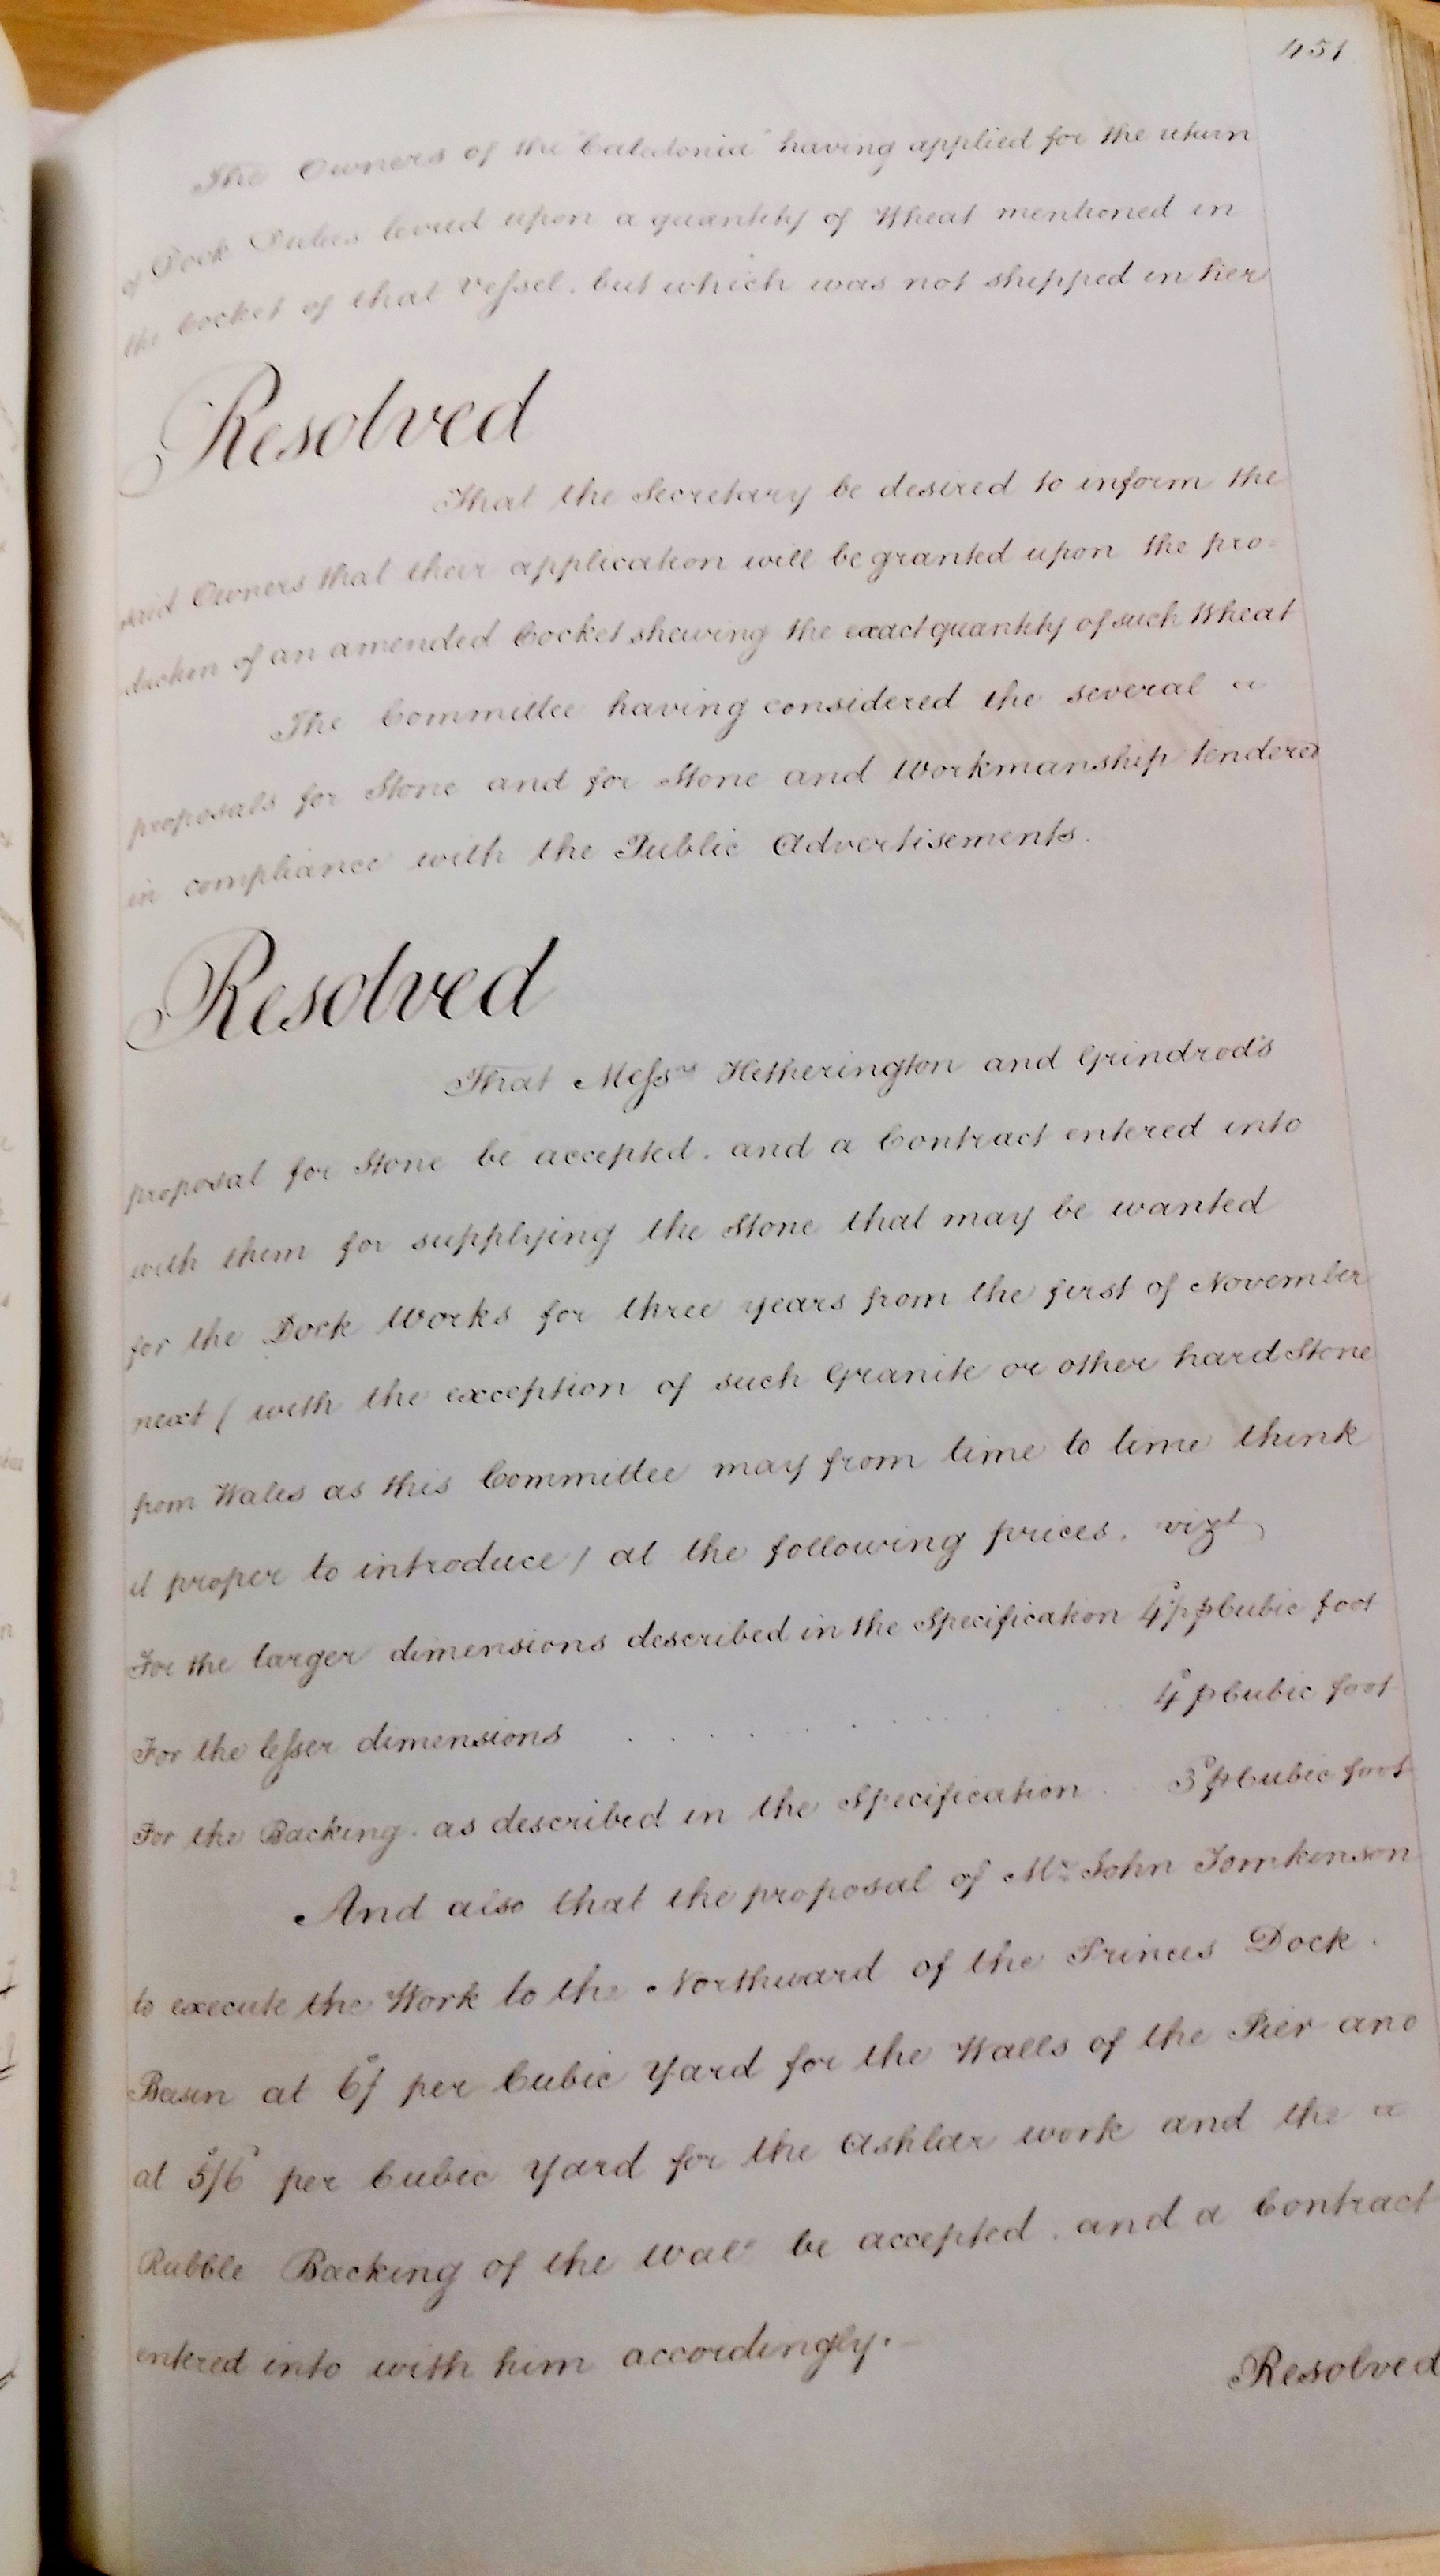 451
The Owners of the "Caledonia" having applied for the return
of Dock Duties levied upon a quantity of Wheat mentioned in
the Cocket of that Vessel. but which was not shipped in her
Resolved
That the Secretary be desired to inform the
said Owners that their application will be granted upon the pro=
duction of an amended Cocket shewing the exact quantity of such Wheat
The Committee having considered the several
proposals for Stone and for Stone and Workmanship tendered
in compliance with the Public Advertisements.
Resolved
That Messrs Hetherington and Grindrod's
proposal for Stone be accepted. and a Contract entered into
with them for supplying the Stone that may be wanted
for the Dock Works for three years from the first of November
next ( with the exception of such Granite or other hard Stone
from Wales as this Committee may from time to time think
it proper to introduce ) at the following prices. vizt
For the larger dimensions described in the Specification Cubic foot
For the lesser dimensions . . . . 4d p Cubic foot
For the Backing. as described in the Specification 3d p Cubic foot
And also that the proposal of Mr John Tomkinson
to execute the Work to the Northward of the Princes Dock.
Basin at 6s/ per Cubic Yard for the Walls of the Pier and
at 5s/6d per Cubic Yard for the Ashlar work and the
Rubble Backing of the Wall be accepted. and a Contract
entered into with him accordingly.
Resolved